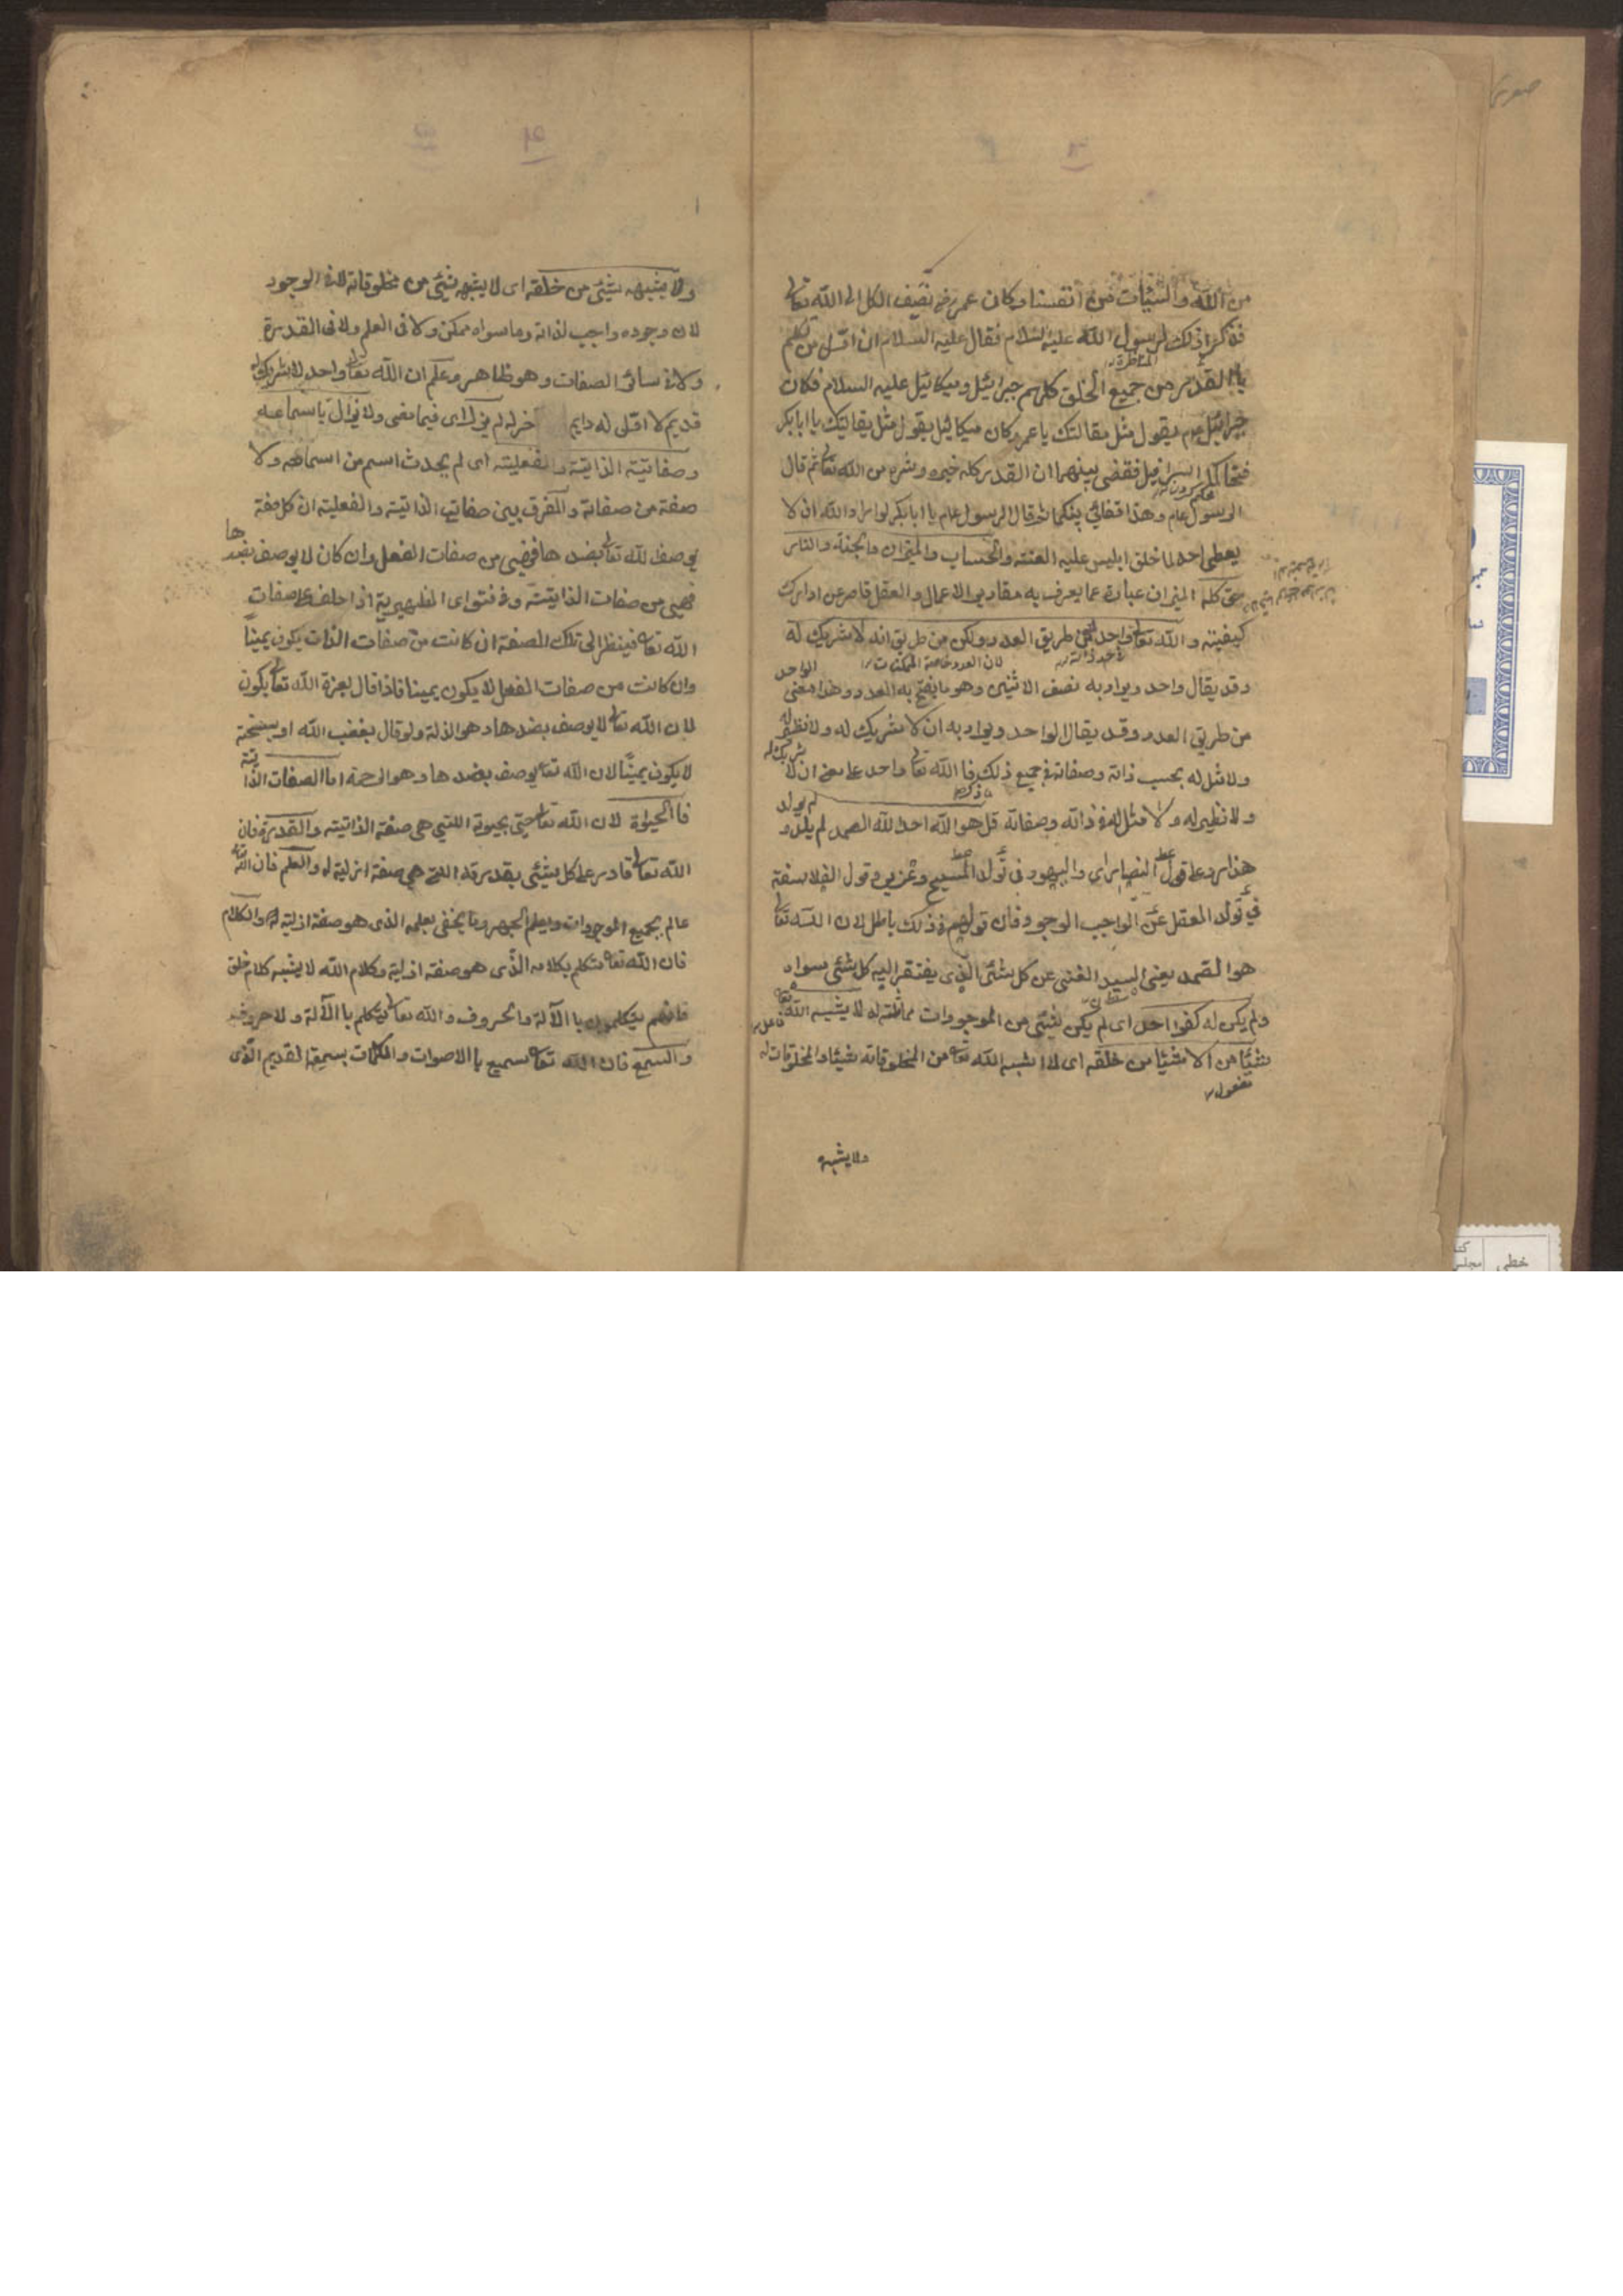 من الله والسيئات من انفسنا وكان عمر رضه تضيف الكل الى الله تعالى
فذكر اذلك لرسول الله عليه السلام فقال عليه السلام ان اول من تكلم
المناظرة
با القدر من جميع الخلق كلهم جبرائيل وميكائيل عليه السلام فكان
جبرائيل عم يقول مثل مقالتك يا عمر وكان ميكائيل يقول مثل يقالتك يا ابا بكر
فتحاكما اسرافيل فقضى بينهما ان القدر كله خيره وشره من الله تعالى ثم قال
الرسول عام وهذا قضائي بينكما ثم قال الرسول عام يا ابا بكر لو اراد الله ان لا
يعطى احد لما خلق ابليس عليه العنته والحساب والميزان والجنة والنار
حق كله الميزان عبارة عما يعرف به مقادير الاعمال والعقل قاصر عن ادارك
كيفيته والله تعالى واحد لا من طريق العدد ولكن من طريق انه لا شريك له
لان العدد خاصة الممكنات
وقد يقال واحد ويراد به نصف الاثنين وهو ما يفتح به العدد وهذا معنى الواحد
من طريق العدد وقد يقال الواحد ويراد به ان لا شريك له ولا نظير له
ولا مثل له بحسب ذاته وصفاته في جميع ذلك فا الله تعالى واحد على معنى ان لا شريك له
ولا نظير له ولا مثل له في ذاته وصفاته قل هو الله احد الله الصمد لم يلد و لم يولد
هذا رد على قول النصاراى واليهود فى تولد المسيح وعزير وقول الفلاسفة
في تولد العقل عن الواجب الوجود فان قولهم في ذلك باطل لان الله تعالى
هو الصمد يعنى السيد الغنى عن كل شئى الذى يفتقر اليه كل شئى سواه
ولم يكن له كفوا احد اى لم يكن شيئى من الموجودات مماثلة له لا يشبه الله تعالى
فاعل
شيئا من الا شيئا من خلقه اى لا يشبه الله تعا من المخلوقاته شيئا والمخلوقات له
مفعول
ولا يشبه
ولا يشبهه شيئى من خلقه اى لا يشبه شيئى من مخلوقاته لا فى الوجود
لان وجوده واجب لذاته وما سواه ممكن ولا فى العلم ولا فى القدرة
ولا فى سائر الصفات وهو ظاهر وعلم ان الله تعالى واحد لا شريك له
قديم لا اول له دايم آخر له لم يزل اى فيما مضى ولا يزال باسماءه
وصفاتيته الذاتيته والفعليته اى لم يحدث اسم من اسماءه ولا
صفة من صفاته والفرق بين صفاته الذاتيته والفعليته ان كل صفة
يوصف الله تعالى بضدها فهى من صفات الفعل وان كان لا يوصف بضدها
فهى من صفات الذاتيته وفى فتواى الظهيرية اذا حلف على صفات
الله تعا فينظر الى تلك الصفة ان كانت من صفات الذات يكون يمينا
وان كانت من صفات الفعل لا يكون يمينا فاذا قال بعزة الله تعالى يكون
لان الله تعا لا يوصف بضدها وهو الذلة ولو قال بغضب الله او بسخته
لا يكون يمينا لان الله تعا يوصف بضدها وهو الرحمة اما الصفات الذاتية
فا الحيوة لان الله تعا حيى بحيوته اللتي هى صفته الذاتيته والقدرة فان
الله تعالى قادر على كل شيئى بقدرته التي هي صفة ازلية له والعلم فان الله تعا
عالم بجميع الموجودات ويعلم الجهر وما يخفى بعلمه الذى هو صفة ازلية له والكلام
فان الله تعا متكلم بكلامه الذى هو صفة ازلية وكلام الله لا يشبه كلام خلق
فانهم يتكلمون با الآلة والحروف والله تعالى يتكلم با الآلة ولا حروف
والسمع فان الله تعا سميع با الاصوات والكلمات بسمعه القديم الذى
خطى